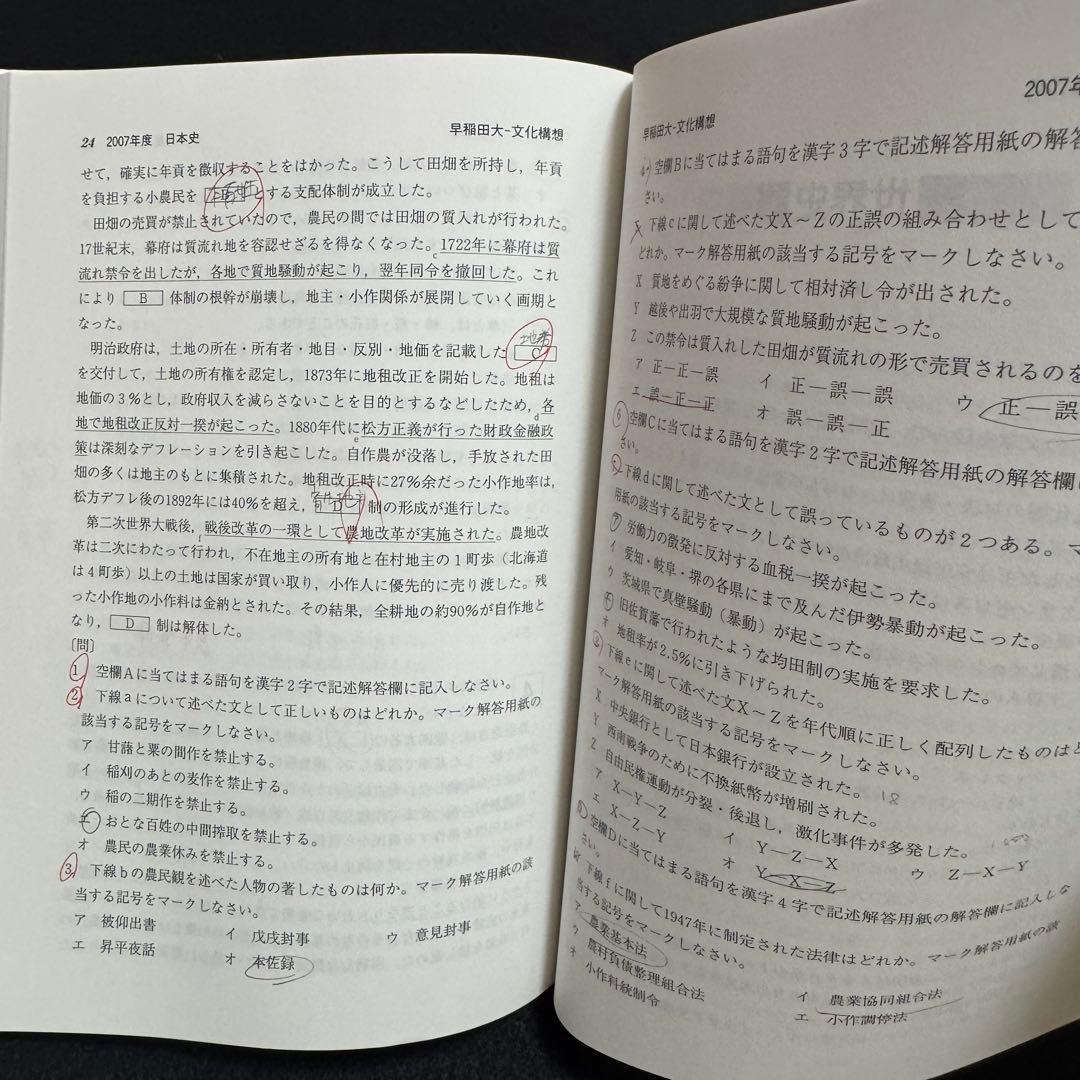 24 2007年度 日本史
早稲田大-文化構想
せて，確実に年貢を徴収することをはかった。こうして田畑を所持し，年貢
を負担する小農民を とする支配体制が成立した。
田畑の売買が禁止されていたので，農民の間では田畑の質入れが行われた。
17世紀末，幕府は質流れ地を容認せざるを得なくなった。c1722年に幕府は質
流れ禁令を出したが，各地で質地騒動が起こり，翌年同令を撤回した。これ
により B 体制の根幹が崩壊し，地主・小作関係が展開していく画期と
なった。
明治政府は，土地の所在・所有者・地目・反別・地価を記載した 地券 C
を交付して，土地の所有権を認定し，1873年に地租改正を開始した。地租は
地価の3％とし，政府収入を減らさないことを目的とするなどしたため，d各
地で地租改正反対一揆が起こった。1880年代にe松方正義が行った財政金融政
策は深刻なデフレーションを引き起こした。自作農が没落し，手放された田
畑の多くは地主のもとに集積された。地租改正時に27％余だった小作地率は，
松方デフレ後の1892年には40％を超え， D 制の形成が進行した。
第二次世界大戦後，f戦後改革の一環として農地改革が実施された。農地改
革は二次にわたって行われ，不在地主の所有地と在村地主の1町歩（北海道
は4町歩）以上の土地は国家が買い取り，小作人に優先的に売り渡した。残
った小作地の小作料は金納とされた。その結果，全耕地の約90％が自作地と
なり， D 制は解体した。
〔問〕
1 空欄Aに当てはまる語句を漢字2字で記述解答欄に記入しなさい。
2 下線aについて述べた文として正しいものはどれか。マーク解答用紙の
該当する記号をマークしなさい。
ア 甘藷と粟の間作を禁止する。
イ 稲刈のあとの麦作を禁止する。
ウ 稲の二期作を禁止する。
エ おとな百姓の中間搾取を禁止する。
オ 農民の農業休みを禁止する。
3 下線bの農民観を述べた人物の著したものは何か。マーク解答用紙の該
当する記号をマークしなさい。
ア 被仰出書 イ 戊戌封事 ウ 意見封事
エ 昇平夜話 オ 本佐録
2007年
早稲田大-文化構想
4 空欄Bに当てはまる語句を漢字3字で記述解答用紙の解答
さい。
下線cに関して述べた文X〜Zの正誤の組み合わせとして
どれか。マーク解答用紙の該当する記号をマークしなさい。
X 質地をめぐる紛争に関して相対済し令が出された。
Y 越後や出羽で大規模な質地騒動が起こった。
Z この禁令は質入れした田畑が質流れの形で売買されるのを
ア 正—正—誤 イ 正—誤—誤 ウ 正—誤
エ 誤—正—正 オ 誤—誤—正
6 空欄Cに当てはまる語句を漢字2字で記述解答用紙の解答欄に
さい。
下線dに関して述べた文として誤っているものが2つある。マ
用紙の該当する記号をマークしなさい。
ア 労働力の徴発に反対する血税一揆が起こった。
イ 愛知・岐阜・堺の各県にまで及んだ伊勢暴動が起こった。
ウ 茨城県で真壁騒動（暴動）が起こった。
エ 旧佐賀藩で行われたような均田制の実施を要求した。
オ 地租率が2.5％に引き下げられた。
8 下線eに関して述べた文X〜Zを年代順に正しく配列したものはど
マーク解答用紙の該当する記号をマークしなさい。
X 中央銀行として日本銀行が設立された。
Y 西南戦争のために不換紙幣が増刷された。
Z 自由民権運動が分裂・後退し，激化事件が多発した。
ア X—Y—Z イ Y—Z—X ウ Z—X—Y
エ X—Z—Y オ Y—X—Z
空欄Dに当てはまる語句を漢字4字で記述解答用紙の解答欄に記入しな
さい。
下線fに関して1947年に制定された法律はどれか。マーク解答用紙の該
当する記号をマークしなさい。
ア 農業基本法 イ 農業協同組合法
ウ 農村負債整理組合法 エ 小作調停法
オ 小作料統制令